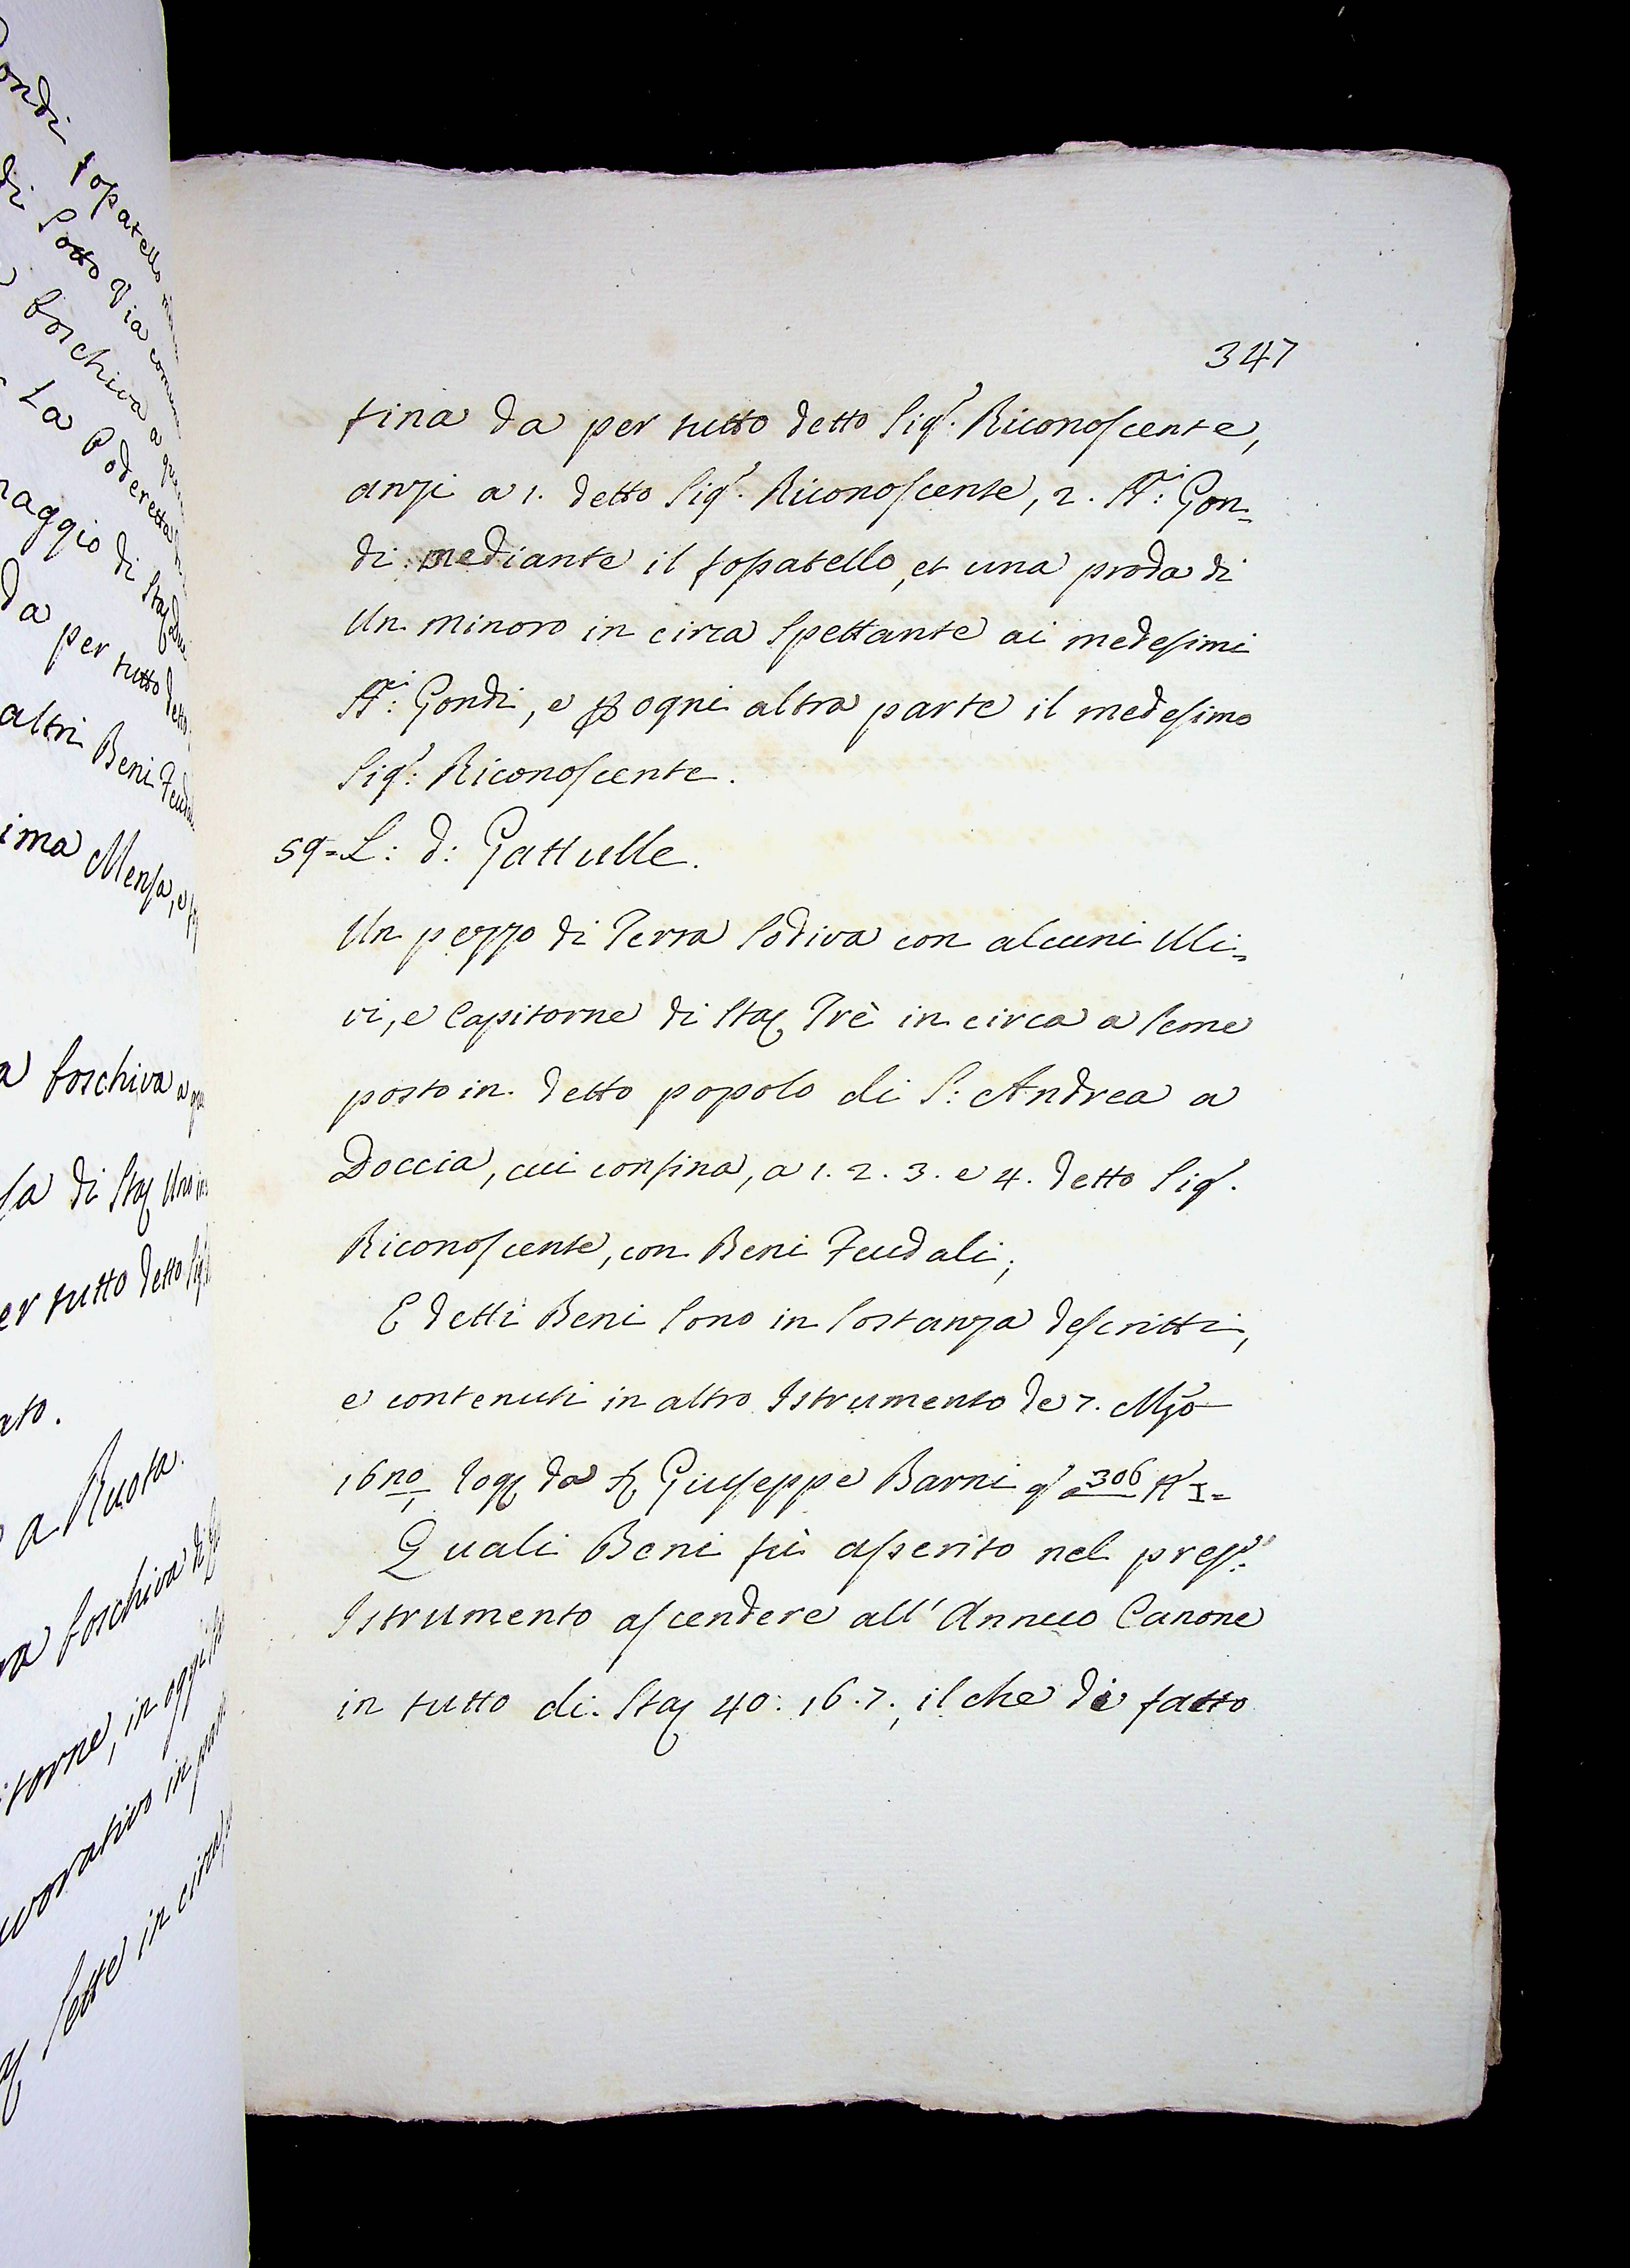 ondi fossatello
di Sotto Via comuna
boschiva a
La Poderetta
naggio di Staj
da per tutto detto
altri Beni Feud
ima Mensa, e
a boschiva a
sa di Staj Uno in
er tutto detto Sig
ato.
a Ruota.
ra boschiva di
itorne, in oggi
avorativo in parte
Sette in circa
347
fina da per tutto detto Sigr. Riconoscente,
anzi a 1. detto Sigr. Riconoscente, 2. SSri: Gon=
di mediante il fossatello, et una proda di
Un minoro in circa Spettante ai medesimi
SSri: Gondi, e p ogni altra parte il medesimo
Sigr: Riconoscente.
59=L: d: Gattulle.
Un pezzo di Terra Sodiva con alcuni Uli=
vi, e Capitorne di Staj Trè in circa a Seme
posto in detto popolo di S: Andrea a
Doccia, cui confina, a 1. 2. 3. e 4. detto Sigr.
Riconoscente, con Beni Feudali;
E detti Beni Sono in Sostanza descritti,
e contenuti in altro Istrumento de 7. Mzo
16no, rog da Giuseppe Barni 306
Quali Beni fù asserito nel press:
Istrumento ascendere all' Annuo Canone
in tutto di Staj 40: 16. 7., il che di fatto